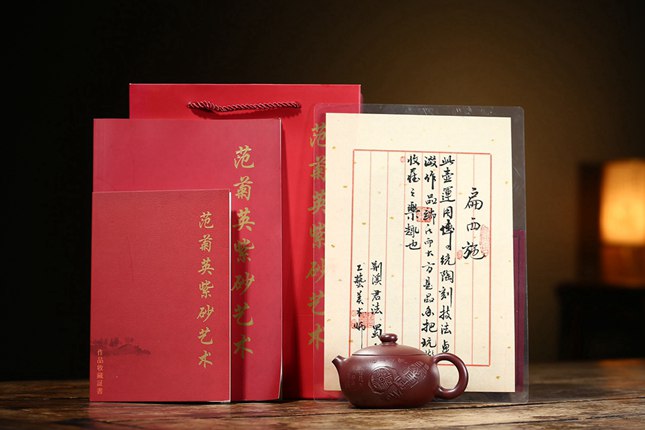 范菊英紫砂艺术
作品收藏证书
范菊英紫砂艺术
范菊英紫砂艺术
扁西施
此壶運用傳統陶刻技法
作品端庄而大方是品茶把玩
收藏之樂趣也
荆溪君法
工藝美术師